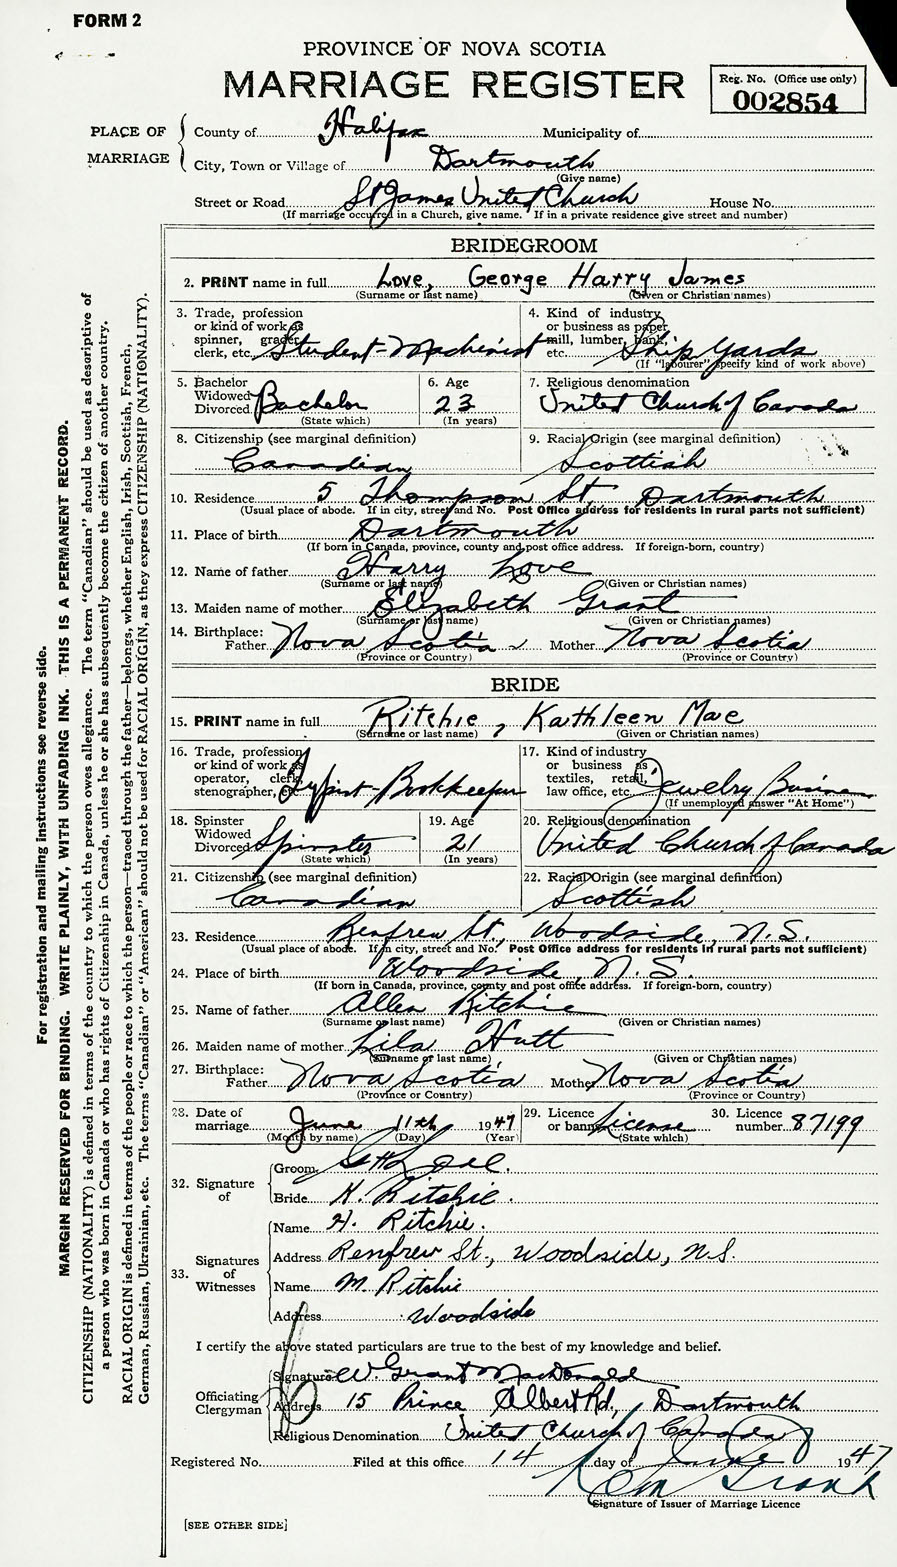 FORM 2
PROVINCE OF NOVA SCOTIA
MARRIAGE REGISTER
Reg. No. (Office use only)
002854
PLACE OF MARRIAGE
County of Halifax Municipality of
City, Town or Village of Dartmouth
(Give name)
Street or Road St James United Church House No.
(If marriage occurred in a Church, give name. If in a private residence give street and number)
BRIDEGROOM
2. PRINT name in full Love, George Harry James
(Surname or last name) (Given or Christian names)
3. Trade, profession or kind of work as spinner, grader, clerk, etc. Student-Machinist
4. Kind of industry or business as paper mill, lumber, bank, etc. Ship Yards
(If "labourer" specify kind of work above)
5. Bachelor Widowed Divorced Bachelor
(State which)
6. Age 23
(In years)
7. Religious denomination
United Church of Canada
8. Citizenship (see marginal definition)
Canadian
9. Racial Origin (see marginal definition)
Scottish
10. Residence 5 Thompson St, Dartmouth
(Usual place of abode. If in city, street and No. Post Office address for residents in rural parts not sufficient)
11. Place of birth Dartmouth
(If born in Canada, province, county and post office address. If foreign-born, country)
12. Name of father Harry Love
(Surname or last name) (Given or Christian names)
13. Maiden name of mother Elizabeth Grant
(Surname or last name) (Given or Christian names)
14. Birthplace: Father Nova Scotia Mother Nova Scotia
(Province or Country) (Province or Country)
BRIDE
15. PRINT name in full Ritchie, Kathleen Mae
(Surname or last name) (Given or Christian names)
16. Trade, profession or kind of work as operator, clerk, stenographer, etc. Typist-Bookkeeper
17. Kind of industry or business as textiles, retail, law office, etc. Jewelry Business
(If unemployed answer "At Home")
18. Spinster Widowed Divorced Spinster
(State which)
19. Age 21
(In years)
20. Religious denomination
United Church of Canada
21. Citizenship (see marginal definition)
Canadian
22. Racial Origin (see marginal definition)
Scottish
23. Residence Renfrew St., Woodside, N.S.
(Usual place of abode. If in city, street and No. Post Office address for residents in rural parts not sufficient)
24. Place of birth Woodside, N.S.
(If born in Canada, province, county and post office address. If foreign-born, country)
25. Name of father Allen Ritchie
(Surname or last name) (Given or Christian names)
26. Maiden name of mother Lila Hutt
(Surname or last name) (Given or Christian names)
27. Birthplace: Father Nova Scotia Mother Nova Scotia
(Province or Country) (Province or Country)
28. Date of marriage June 11th 1947
(Month by name) (Day) (Year)
29. Licence or banns License
(State which)
30. Licence number 87199
32. Signature of
Groom
Bride K. Ritchie.
33. Signatures of Witnesses
Name H. Ritchie.
Address Renfrew St., Woodside, N.S.
Name M. Ritchie
Address Woodside
I certify the above stated particulars are true to the best of my knowledge and belief.
Officiating Clergyman
Signature W. Grant MacDonald
Address 15 Prince Albert Rd, Dartmouth
Religious Denomination United Church of Canada
Registered No. Filed at this office 14 day of June 1947
Signature of Issuer of Marriage Licence
[SEE OTHER SIDE]
For registration and mailing instructions see reverse side.
MARGIN RESERVED FOR BINDING. WRITE PLAINLY, WITH UNFADING INK. THIS IS A PERMANENT RECORD.
CITIZENSHIP (NATIONALITY) is defined in terms of the country to which the person owes allegiance. The term "Canadian" should be used as descriptive of
a person who was born in Canada or who has rights of Citizenship in Canada, unless he or she has subsequently become the citizen of another country.
RACIAL ORIGIN is defined in terms of the people or race to which the person—traced through the father—belongs, whether English, Irish, Scottish, French,
German, Russian, Ukrainian, etc. The terms "Canadian" or "American" should not be used for RACIAL ORIGIN, as they express CITIZENSHIP (NATIONALITY).